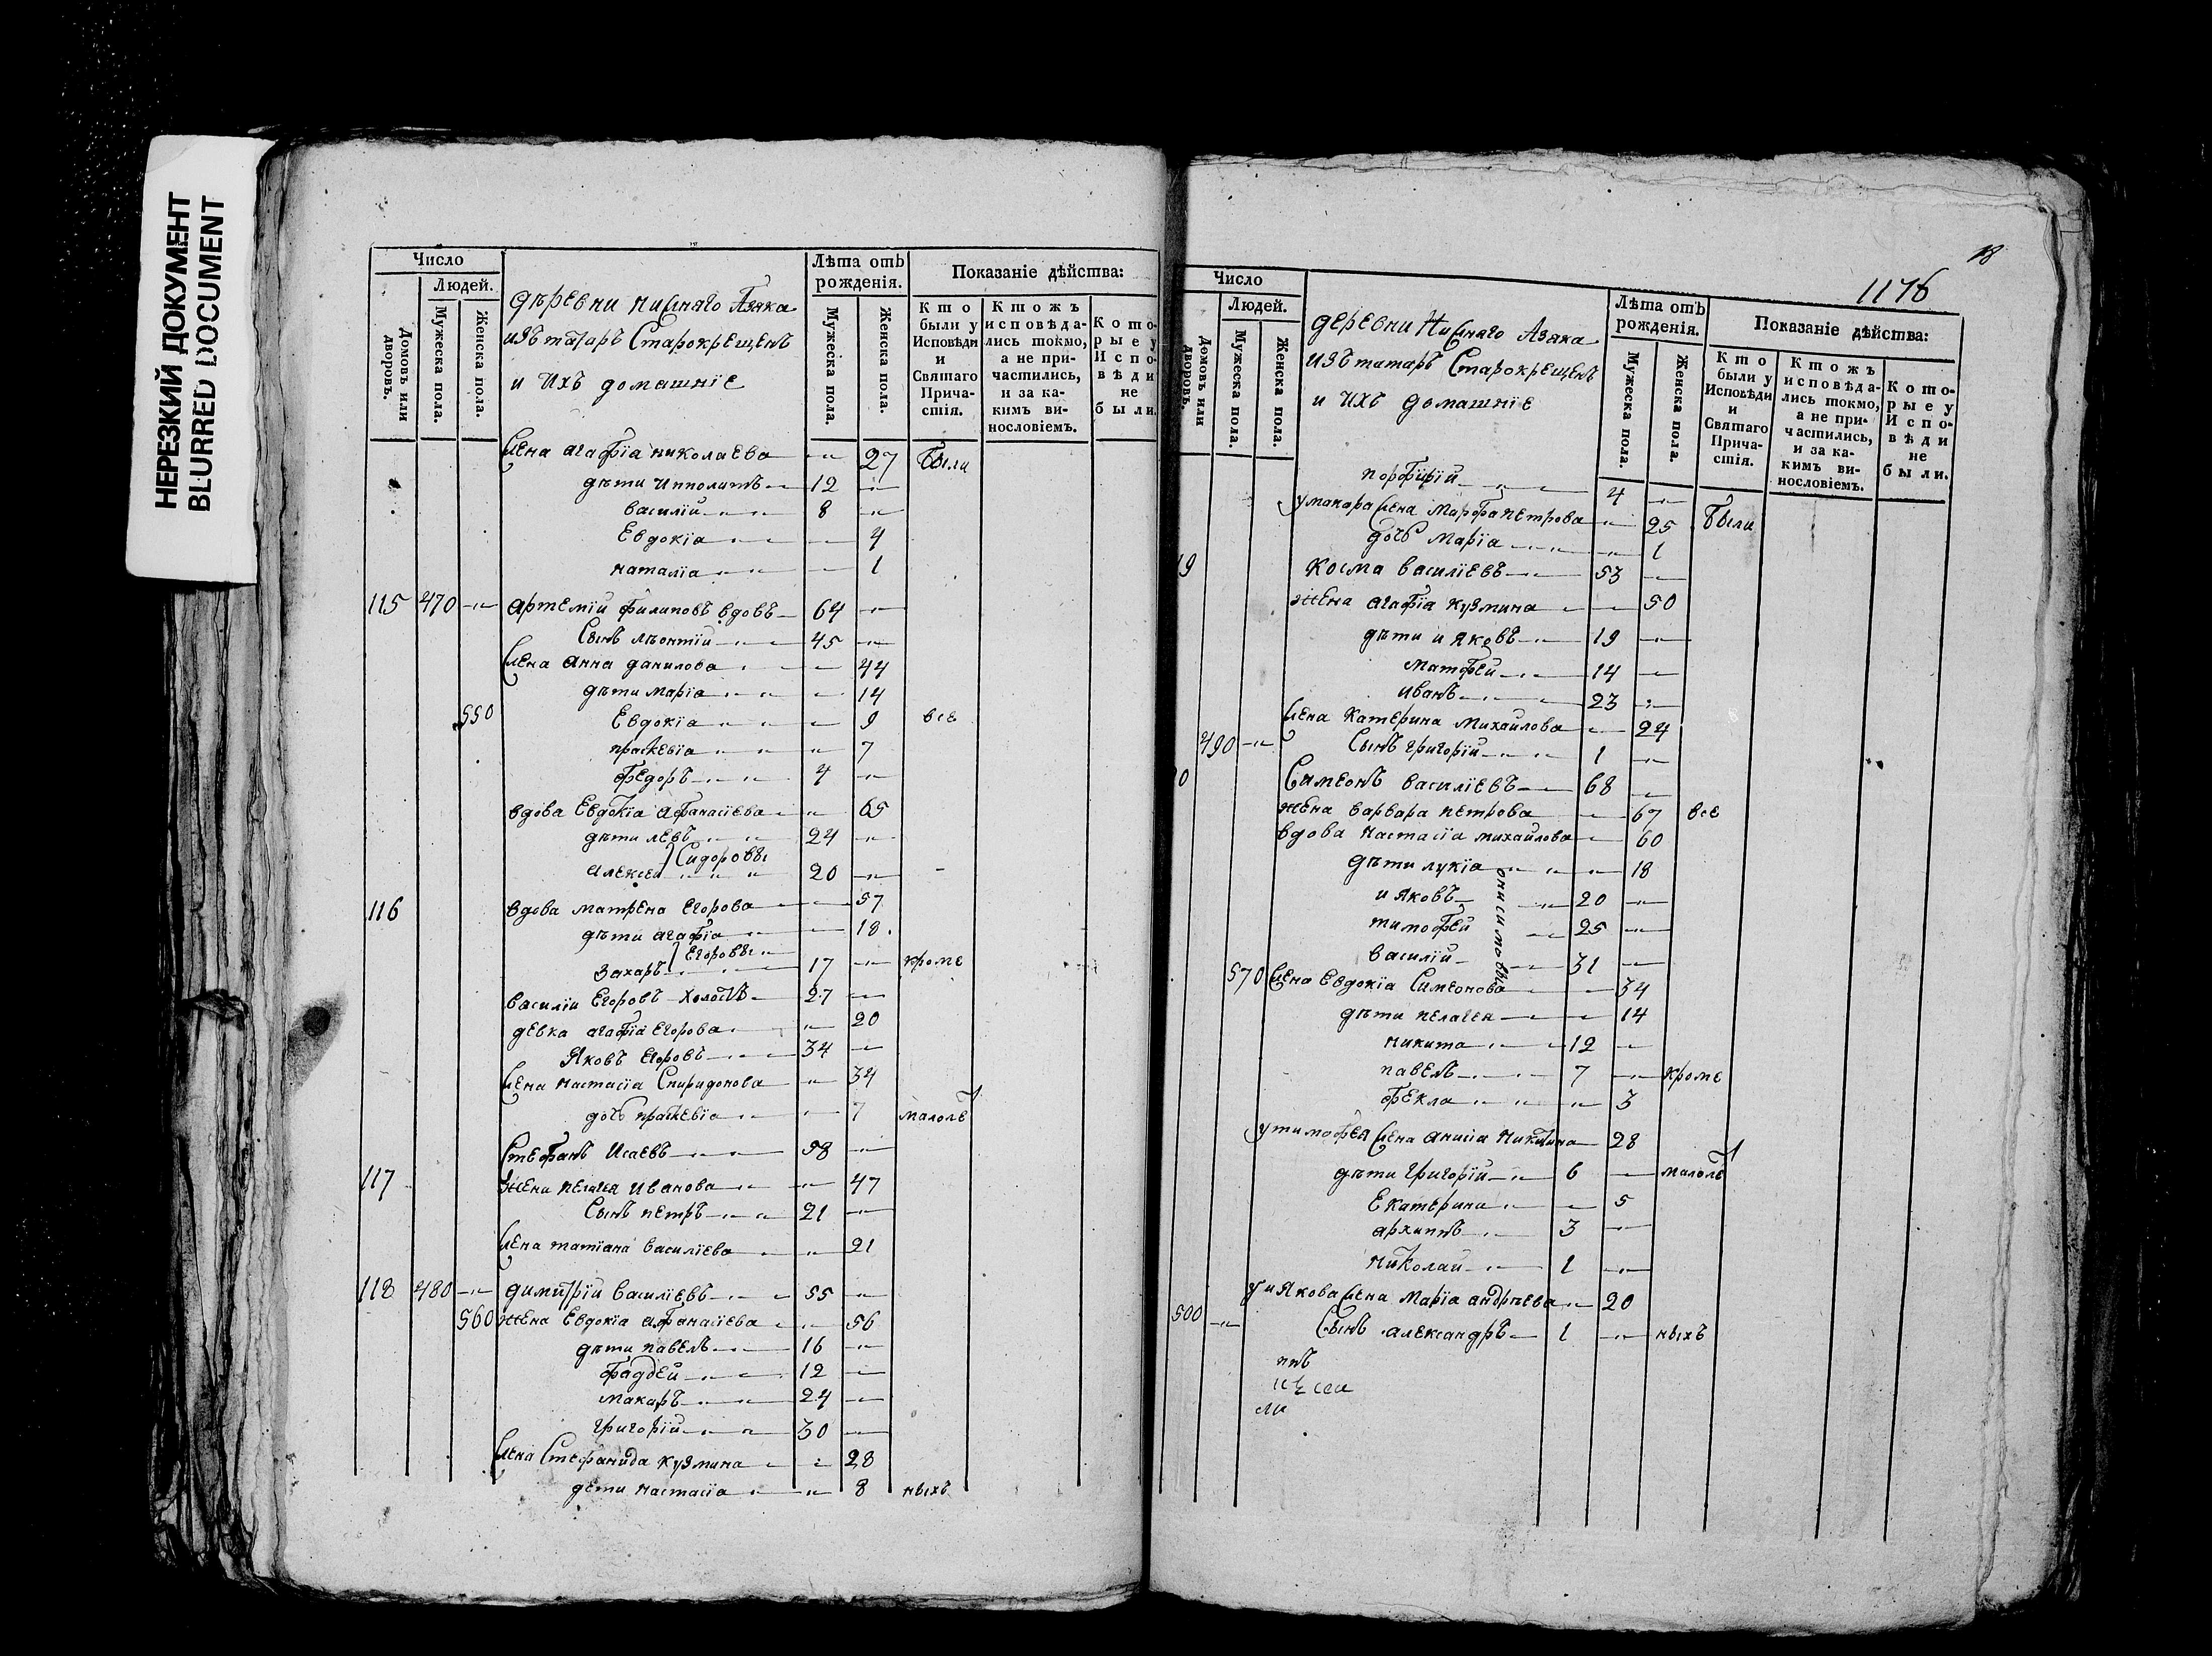 НЕРЕЗКИЙ ДОКУМЕНТ
BLURRED DOCUMENT
Число
Людей.
Домовъ или дворовъ.
Мужеска пола.
Женска пола.
деревни нижняго Азяка
изъ татаръ Старокрещенъ
и ихъ домашніе
Лѣта отъ рожденія.
Мужеска пола.
Женска пола.
Показаніе дѣйства:
Кто были у Исповѣди и Святаго Причастія.
Ктожъ исповѣдались токмо, а не причастились, и за какимъ винословіемъ.
Которые у Исповѣди не были.
жена агафіа николаева 27 были
дѣти ипполитъ 12
василій 8
Евдокіа 4
наталіа 1
115 470 артемій филиповъ вдовъ 64
Сынъ лѣонтій 45
жена анна данилова 44
дѣти маріа 14
550 Евдокіа 9 все
праскевіа 7
федоръ 4
вдова Евдокіа афанасіева 65
дѣти левъ 24
Сидоровы
алексей 20
116 вдова матрена Егорова 57
дѣти агафіа 18
Егоровы
Захаръ 17 кроме
василій Егоровъ холостъ 27
девка агафіа Егорова 20
Яковъ Егоровъ 34
жена настасіа Спиридонова 34
дочь праскевіа 7 малолѣт
Стефанъ Исаевъ 58
117 жена пелагея иванова 47
Сынъ петръ 21
жена татіана василіева 21
118 480 димитрій василіевъ 55
560 жена Евдокіа афанасіева 56
дѣти павелъ 16
фаддей 12
макаръ 24
григорій 30
жена Стефанида кузмина 28
дети настасіа 8 ныхъ
18
1176
Число
Людей.
Домовъ или дворовъ.
Мужеска пола.
Женска пола.
деревни Нижняго Азяка
изъ татаръ Старокрещенъ
и ихъ домашніе
Лѣта отъ рожденія.
Мужеска пола.
Женска пола.
Показаніе дѣйства:
Кто были у Исповѣди и Святаго Причастія.
Ктожъ исповѣдались токмо, а не причастились, и за какимъ винословіемъ.
Которые у Исповѣди не были.
порфирій 4
у макара жена Марфа петрова 25 были
дочь маріа 1
19 Косма василіевъ 53
жена агафіа кузмина 50
дѣти и яковъ 19
матфей 14
иванъ 23
жена Катерина михаилова 24
490 Сынъ григорій 1
0 Симеонъ василіевъ 68
жена варвара петрова 67 все
вдова настасіа михаилова 60
дѣти лукіа 18
и яковъ 20
тимофей 25
василій 31
онисимовы
570 жена Евдокіа Симеонова 34
дѣти пелагея 14
никита 12
павелъ 7 кроме
фекла 3
у тимофея жена анисіа никитина 28
дѣти григорій 6 малолѣт
Екатерина 5
архиппъ 3
николай 1
у и якова жена маріа андрѣева 20
500 Сынъ александръ 1 ныхъ